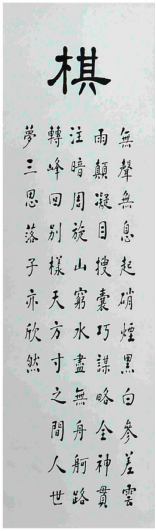 棋
無聲無息起硝煙黑白參差雲
雨顛凝目搜囊巧謀略全神貫
注暗周旋山窮水盡無舟舸路
轉峰回別樣天方寸之間人世
夢三思落子亦欣然